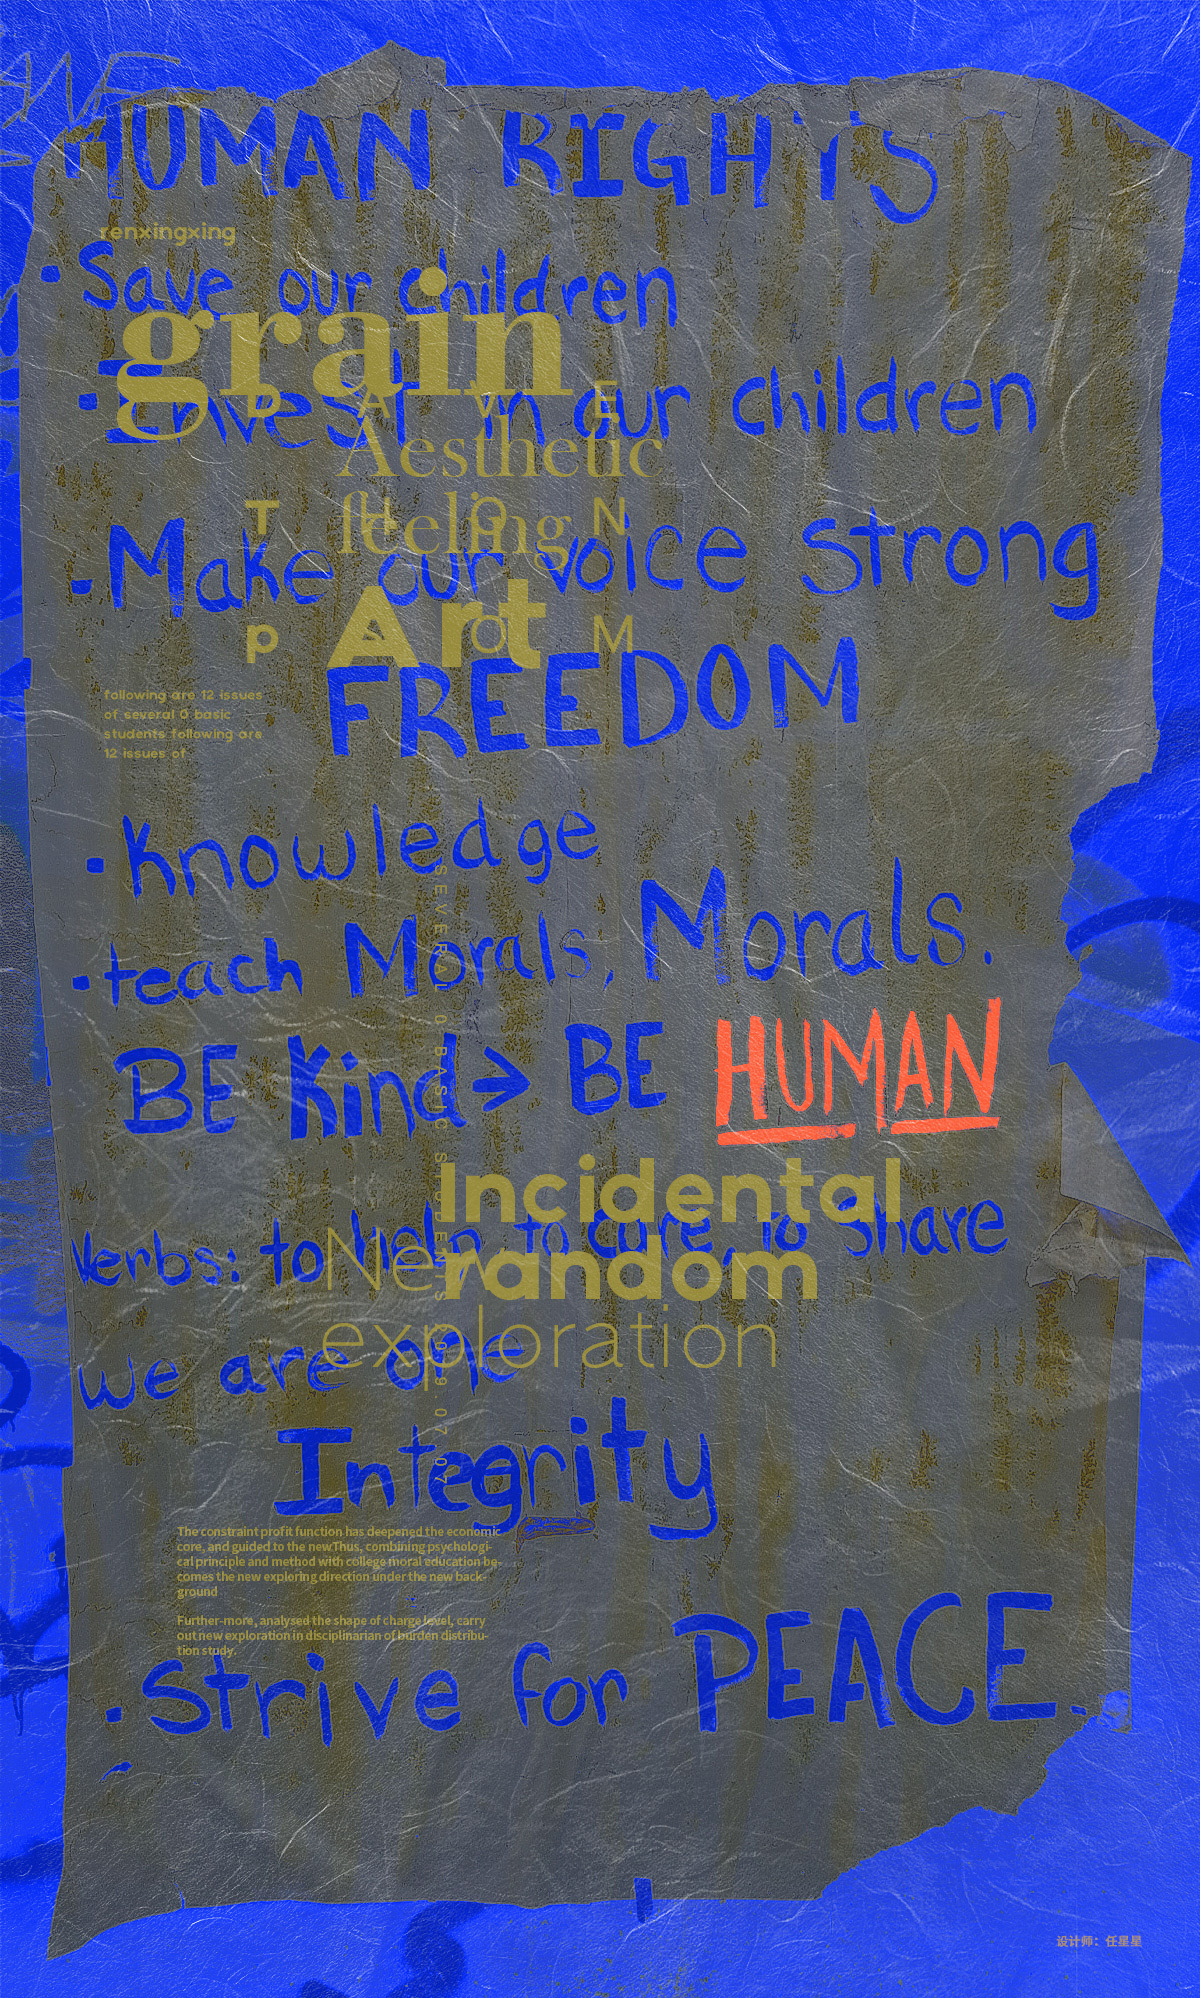 HUMAN RIGHTS
renxingxing
• Save our children
grain
• Invest in our children
D A V E
Aesthetic
T H O N
feeling
• Make our voice strong
Art
P A O M
FREEDOM
following are 12 issues
of several 0 basic
students following are
12 issues of
• Knowledge
• teach Morals, Morals.
BE Kind > BE HUMAN
Incidental
Verbs: to help, to care, to share
New random
exploration
we are one
Integrity
SEVERAL 0 BASIC STUDENTS 2019 07 07
The constraint profit function has deepened the economic
core, and guided to the new.Thus, combining psychologi-
cal principle and method with college moral education be-
comes the new exploring direction under the new back-
ground
Further-more, analysed the shape of charge level, carry
out new exploration in disciplinarian of burden distribu-
tion study.
• Strive for PEACE.
设计师：任星星